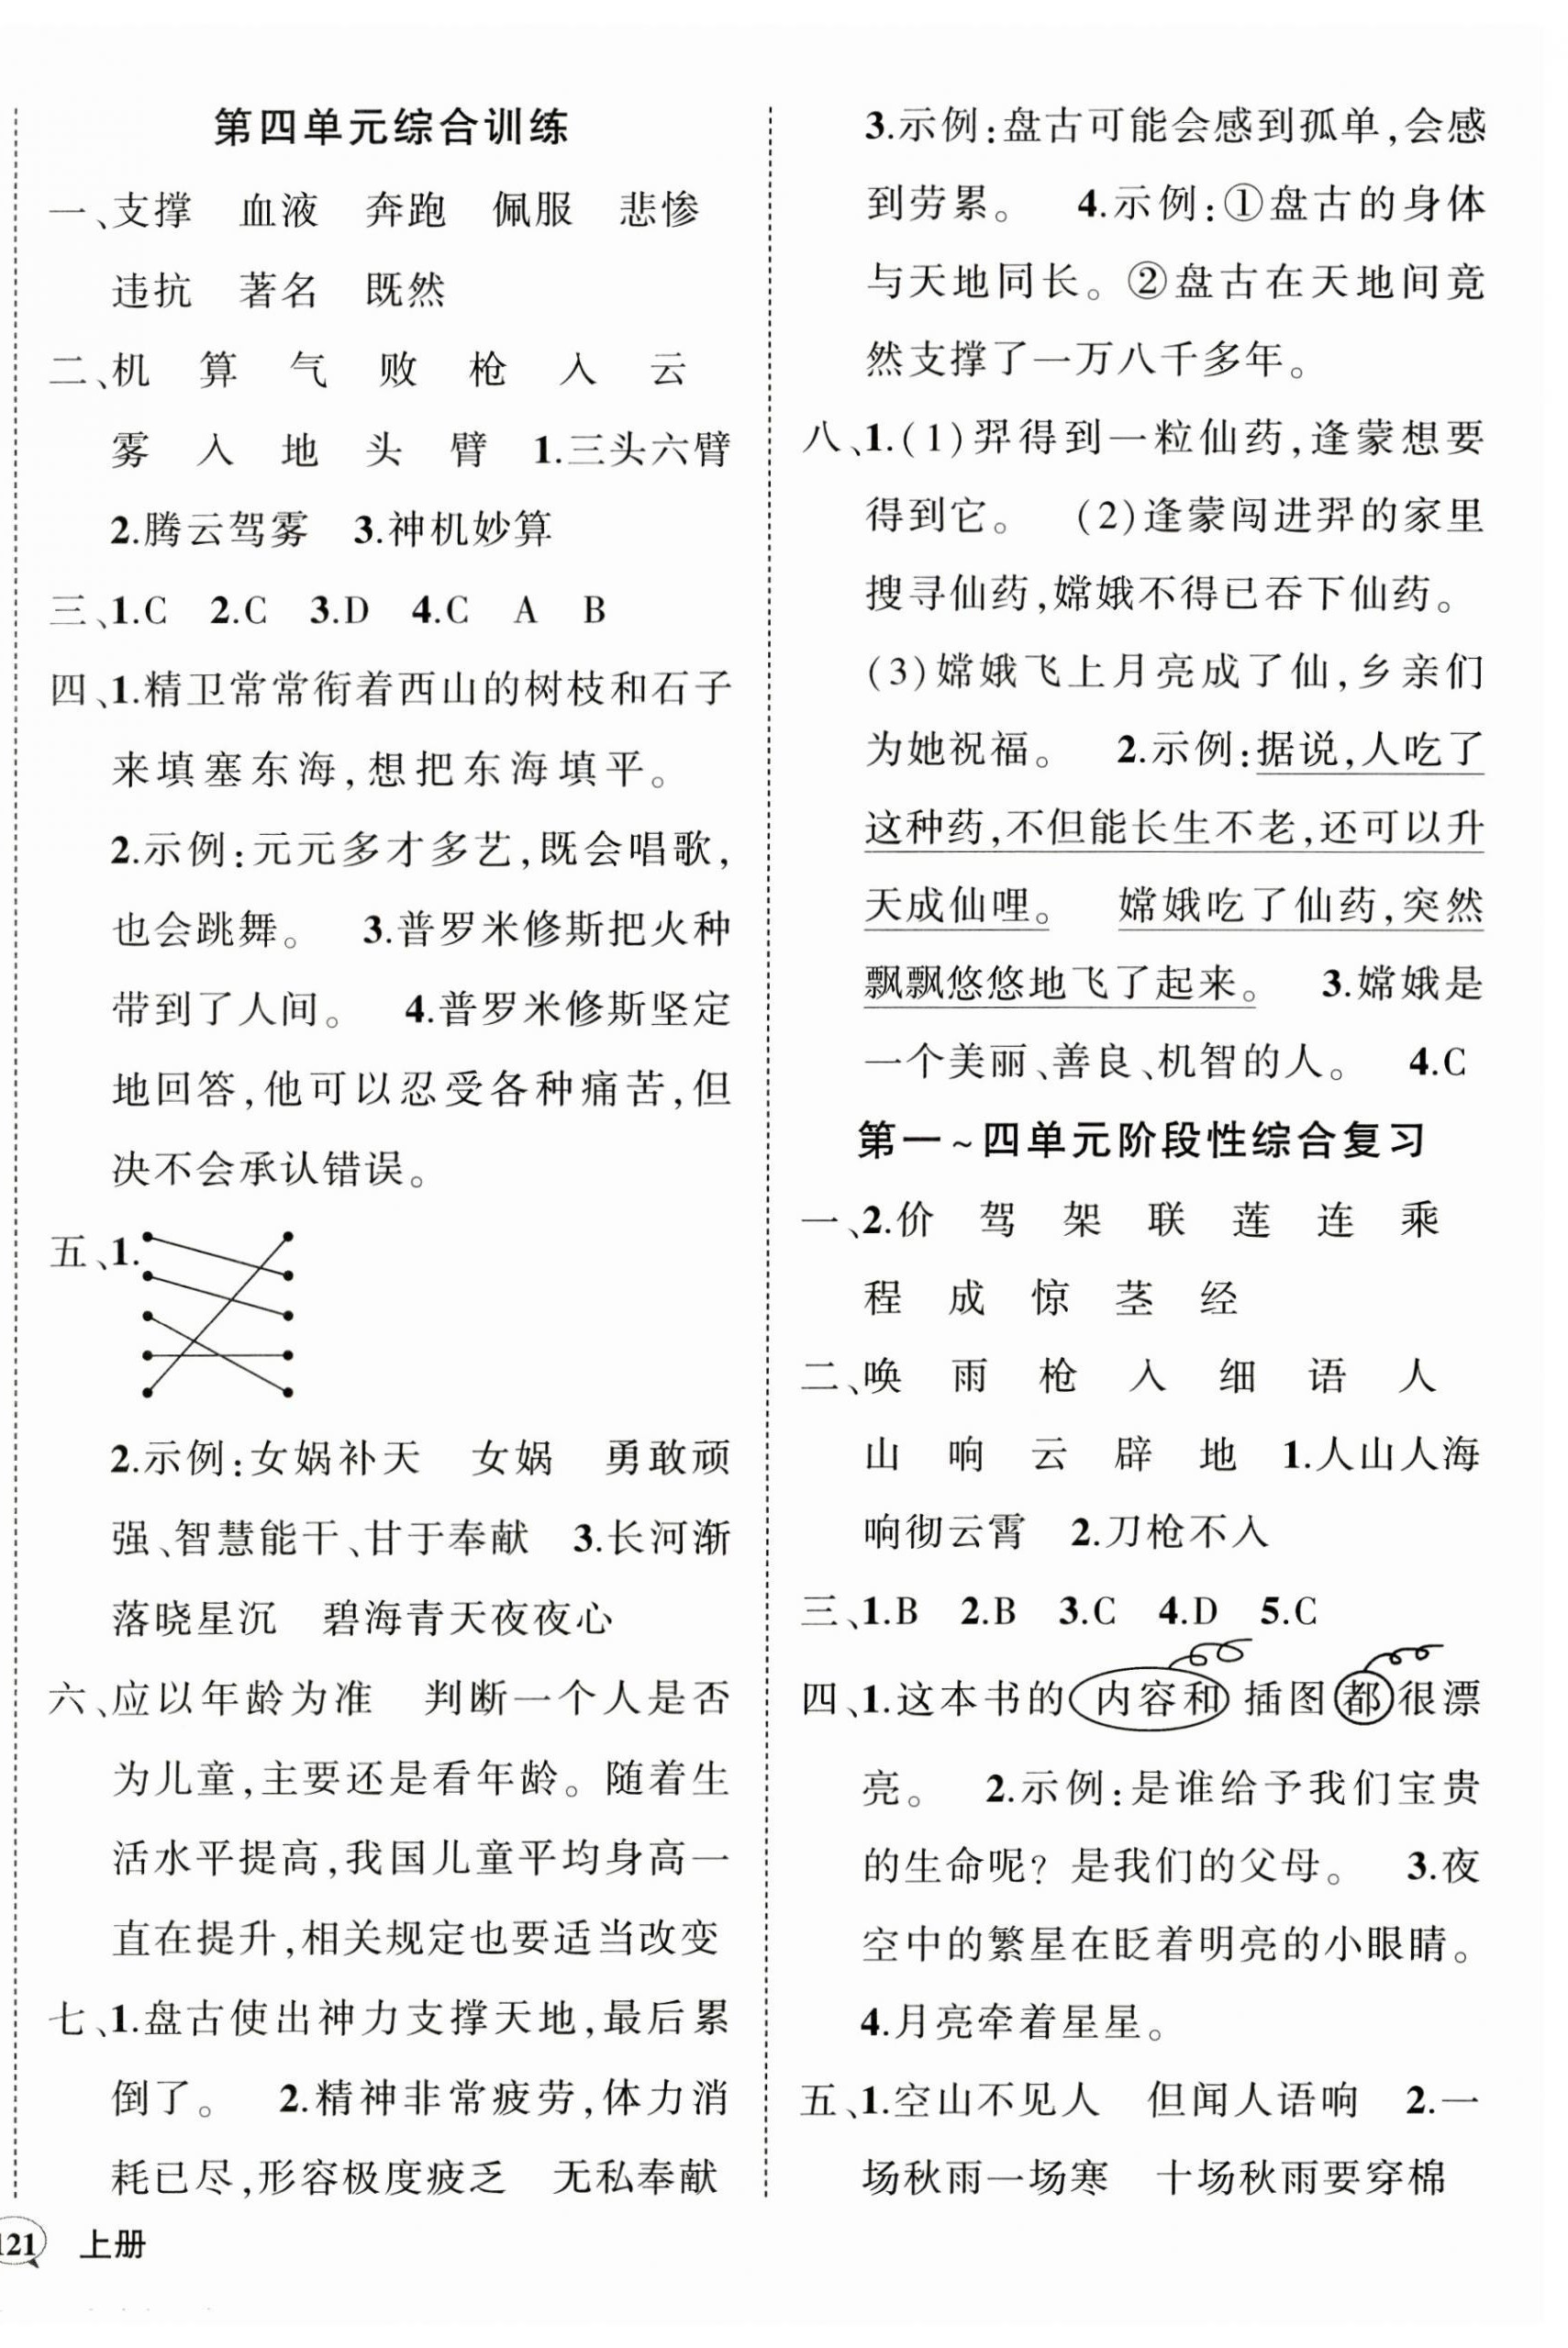 第四单元综合训练
一、支撑 血液 奔跑 佩服 悲惨
违抗 著名 既然
二、机 算 气 败 枪 入 云
雾 入 地 头 臂 1.三头六臂
2.腾云驾雾 3.神机妙算
三、1.C 2.C 3.D 4.C A B
四、1.精卫常常衔着西山的树枝和石子
来填塞东海,想把东海填平。
2.示例:元元多才多艺,既会唱歌,
也会跳舞。 3.普罗米修斯把火种
带到了人间。 4.普罗米修斯坚定
地回答,他可以忍受各种痛苦,但
决不会承认错误。
五、1.
2.示例:女娲补天 女娲 勇敢顽
强、智慧能干、甘于奉献 3.长河渐
落晓星沉 碧海青天夜夜心
六、应以年龄为准 判断一个人是否
为儿童,主要还是看年龄。随着生
活水平提高,我国儿童平均身高一
直在提升,相关规定也要适当改变
七、1.盘古使出神力支撑天地,最后累
倒了。 2.精神非常疲劳,体力消
耗已尽,形容极度疲乏 无私奉献
121 上册
3.示例:盘古可能会感到孤单,会感
到劳累。 4.示例:①盘古的身体
与天地同长。②盘古在天地间竟
然支撑了一万八千多年。
八、1.(1)羿得到一粒仙药,逢蒙想要
得到它。 (2)逢蒙闯进羿的家里
搜寻仙药,嫦娥不得已吞下仙药。
(3)嫦娥飞上月亮成了仙,乡亲们
为她祝福。 2.示例:据说,人吃了
这种药,不但能长生不老,还可以升
天成仙哩。 嫦娥吃了仙药,突然
飘飘悠悠地飞了起来。 3.嫦娥是
一个美丽、善良、机智的人。 4.C
第一~四单元阶段性综合复习
一、2.价 驾 架 联 莲 连 乘
程 成 惊 茎 经
二、唤 雨 枪 入 细 语 人
山 响 云 辟 地 1.人山人海
响彻云霄 2.刀枪不入
三、1.B 2.B 3.C 4.D 5.C
四、1.这本书的内容和插图都很漂
亮。 2.示例:是谁给予我们宝贵
的生命呢?是我们的父母。 3.夜
空中的繁星在眨着明亮的小眼睛。
4.月亮牵着星星。
五、1.空山不见人 但闻人语响 2.一
场秋雨一场寒 十场秋雨要穿棉